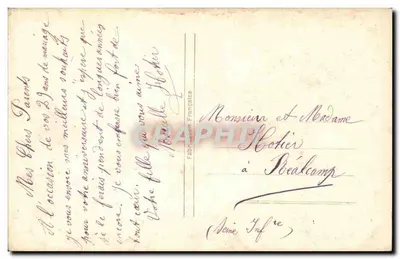 Mes Chers Parents
A l'occasion de vos 29 ans de mariage
je vous envoie mes meilleurs souhaits
pour votre anniversaire et j'espère que
je le ferais pendant de longues années
encore. Je vous embrasse bien fort de
tout cœur.
Votre fille qui vous aime
Hotier
Fabrication Française
Monsieur et Madame
Hotier
à Réalcamp
(Seine Infre)